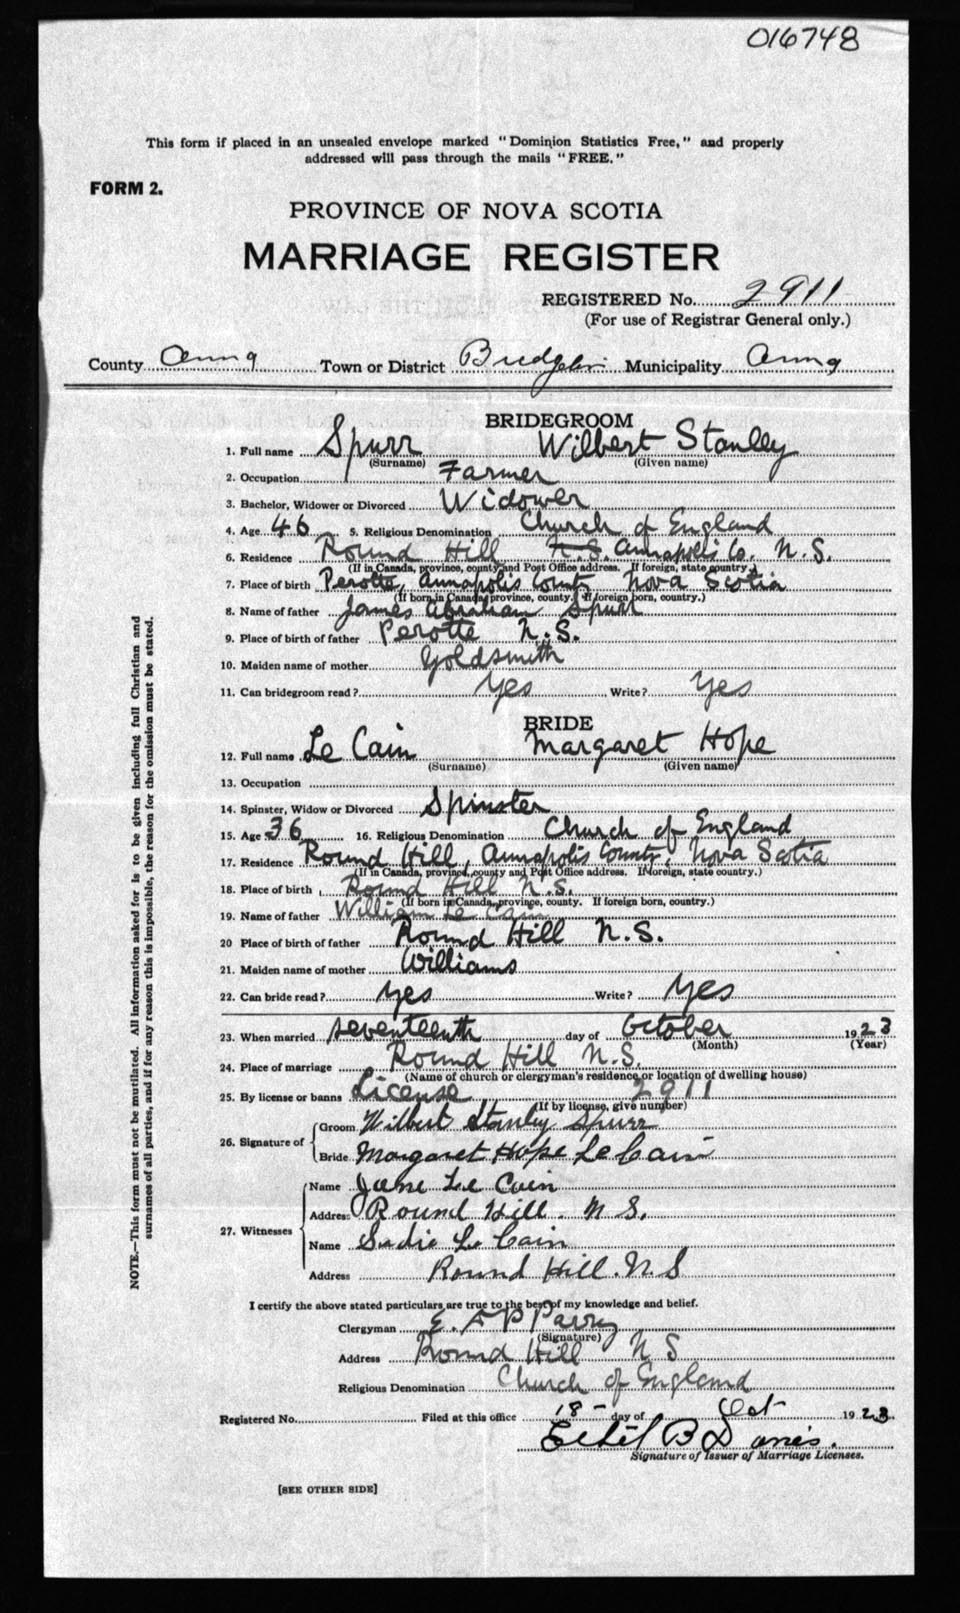 016748
This form if placed in an unsealed envelope marked "Dominion Statistics Free," and properly
addressed will pass through the mails "FREE."
FORM 2.
PROVINCE OF NOVA SCOTIA
MARRIAGE REGISTER
REGISTERED No. 2911
(For use of Registrar General only.)
County Anna Town or District Municipality Anna
BRIDEGROOM
1. Full name Spurr Wilbert Stanley
(Surname) (Given name)
2. Occupation Farmer
3. Bachelor, Widower or Divorced Widower
4. Age 46 5. Religious Denomination Church of England
6. Residence Round Hill N.S. Annapolis Co. N.S.
(If in Canada, province, county and Post Office address. If foreign, state country.)
7. Place of birth Perotte, Annapolis County Nova Scotia
(If born in Canada, province, county. If foreign born, country.)
8. Name of father James Abraham Spurr
9. Place of birth of father Perotte N.S.
10. Maiden name of mother Goldsmith
11. Can bridegroom read? Yes Write? Yes
BRIDE
12. Full name Le Cain Margaret Hope
(Surname) (Given name)
13. Occupation
14. Spinster, Widow or Divorced Spinster
15. Age 36 16. Religious Denomination Church of England
17. Residence Round Hill, Annapolis County, Nova Scotia
(If in Canada, province, county and Post Office address. If foreign, state country.)
18. Place of birth Round Hill N.S.
(If born in Canada, province, county. If foreign born, country.)
19. Name of father William Le Cain
20 Place of birth of father Round Hill N.S.
21. Maiden name of mother Williams
22. Can bride read? Yes Write? Yes
23. When married seventeenth day of October 1923
(Month) (Year)
24. Place of marriage Round Hill N.S.
(Name of church or clergyman's residence or location of dwelling house)
25. By license or banns License 2911
(If by license, give number)
26. Signature of
Groom Wilbert Stanley Spurr
Bride Margaret Hope Le Cain
27. Witnesses
Name Jane Le Cain
Address Round Hill. N S.
Name Sadie Le Cain
Address Round Hill. N.S
I certify the above stated particulars are true to the best of my knowledge and belief.
Clergyman E. P Parry
(Signature)
Address Round Hill N S
Religious Denomination Church of England
Registered No. Filed at this office 18- day of Oct 1923.
Ethel B Davis.
Signature of Issuer of Marriage Licenses.
[SEE OTHER SIDE]
NOTE.—This form must not be mutilated. All information asked for is to be given including full Christian and
surnames of all parties, and if for any reason this is impossible, the reason for the omission must be stated.